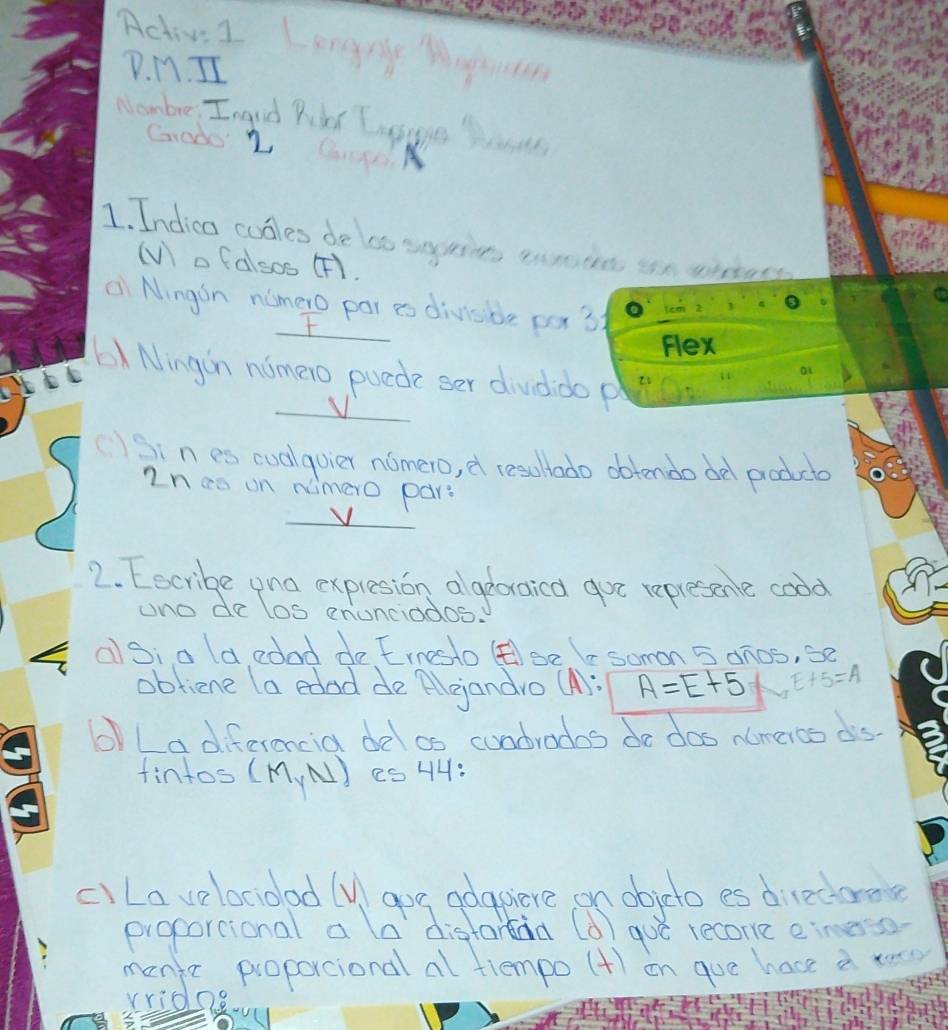 Activ: 1 Lenguaje
P.M. II
Nombre: Ingrid
Grado: 2 Grupo: A
1. Indica cuáles de los siguientes enunciados son
(V) o falsos (F).
a) Ningún número par es divisible por 3:
F
b) Ningún número puede ser dividido por 0:
V
c) Si n es cualquier número, el resultado obtenido del producto
2n es un número par:
V
2. Escribe una expresión algebraica que represente cada
uno de los enunciados.
a) Si a la edad de Ernesto (E) se le suman 5 años, se
obtiene la edad de Alejandro (A): A=E+5 E+5=A
b) La diferencia de los cuadrados de dos números dis-
tintos (M y N) es 44:
c) La velocidad (V) que adquiere un objeto es directamente
proporcional a la distancia (d) que recorre e inversa-
mente proporcional al tiempo (t) en que hace el reco
rrido:
0 1cm 2 3 4 5 6
Flex
mix